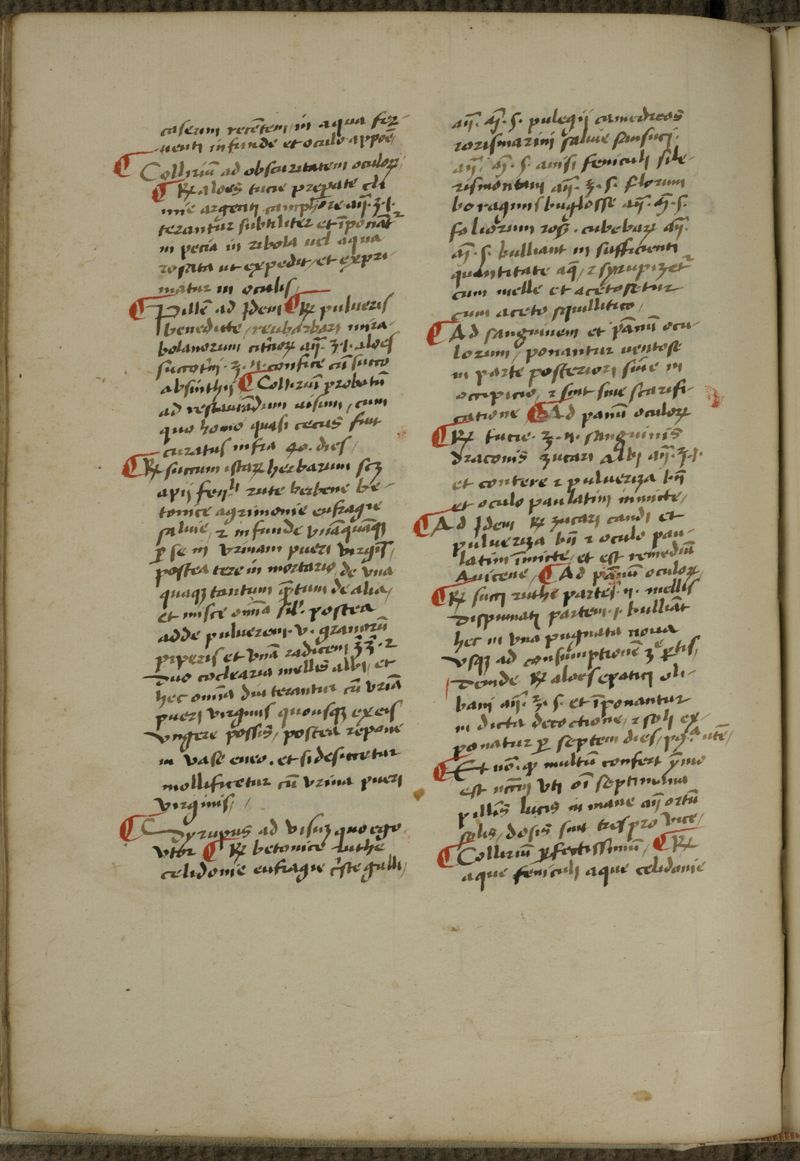 caseum recētem in aqua fer-
uenti infunde et oculo appōe
Colliriū ad obscuritatem oculoꝝ
℞ aloes tucie preparate cli
mie argenti camphore aꝰ. ʒ. ⁊.
terantur subtiliter et īponāt
in pecia in ribola uel aqua
rosata ut expedit, et expri-
matur in oculis,
Pillē ad Jdem ℞ pulueris
benedicte, reubarbari mira-
bolanorum citrīoꝝ aā. ʒ. j. aloes
succotrī. ʒ. ij. confice cū succo
absinthij Colliriū probatū
ad restaurādum uisum, cum
quo homo quasi cecus fuit
curatus infra 40. dies,
℞ succum istaꝝ herbarum scꝫ
apij feni rute berbene be-
tonice agrimonie eufragie
saluie, ⁊ infunde vnāquāqꝫ
ꝑ se in vrinam pueri virgīs,
postea tere in mortario de vna
quaqꝫ tantum qtum de alia,
et misce omīa sil. postea
adde puluerem. v. granorū
piperis et vnā radicem ʒʒ. ⁊
Duo coclearia mellis albi, et
hec omīa diu terantur cū vrīa
pueri virginis quousqꝫ ex eis
vngere possis, postea repone
in vase eneo. et si desiccetur
mollificetur cū vrina pueri
virginis, /
Syrupus ad visuꝫ quo ego
vtor ℞ betonice ruthe
celidonie eufragie cʳste galli,
aā. aʒ. s. pulegij camedreos
rorismarini saluie sansuci
aā. aʒ. s. anisi feniculi sile-
rismontani aā. ʒ. s. florum
boraginis buglosse aā. aʒ. s.
foliorum roꝝ. cubebaꝝ aā.
aʒ. s. bulliant in sufficienti
quantitate aq̄, ⁊ syrupizet
cum melle et acetosetur
cum aceto squillitico,
Ad sanguinem et pānū ocu-
lorum, ponantur uentose
in parte posteriori siue in
occipicio, ⁊ sint siue scarifi-
catione Ad panū oculoꝝ
℞ tucie. ʒ. ij. sanguinis
draconis zucari albi aā. ʒ. j.
et contere ⁊ pulueriza bñ
et oculo paulatim inmicte,
Ad Jdem ℞ zucari candi et
pulueriza bñ ⁊ oculo pau-
latim īmicte, et est remediū
Auicene, Ad pānū oculoꝝ
℞ succi ruthe partes. ij. mellis
dispumati partem. j. bulliāt
hec in vna pugnata noua
vsqꝫ ad consumptionē 3ᵉ ꝑtis,
Deinde ℞ aloes epatici oli-
bani aā. ʒ. s. et īponantur
in dicta decoctione, ⁊ soli ex-
ponatur ꝑ septem dies,
Et nō. ꝙ multū confert ȳmo
est nccīj vti oī septimana
pillis lucis in mane añ ortū
solis, dosis sint tres pro vice,
Colliriū ꝑfectissimū, ℞
aque feniculi aque celidonie